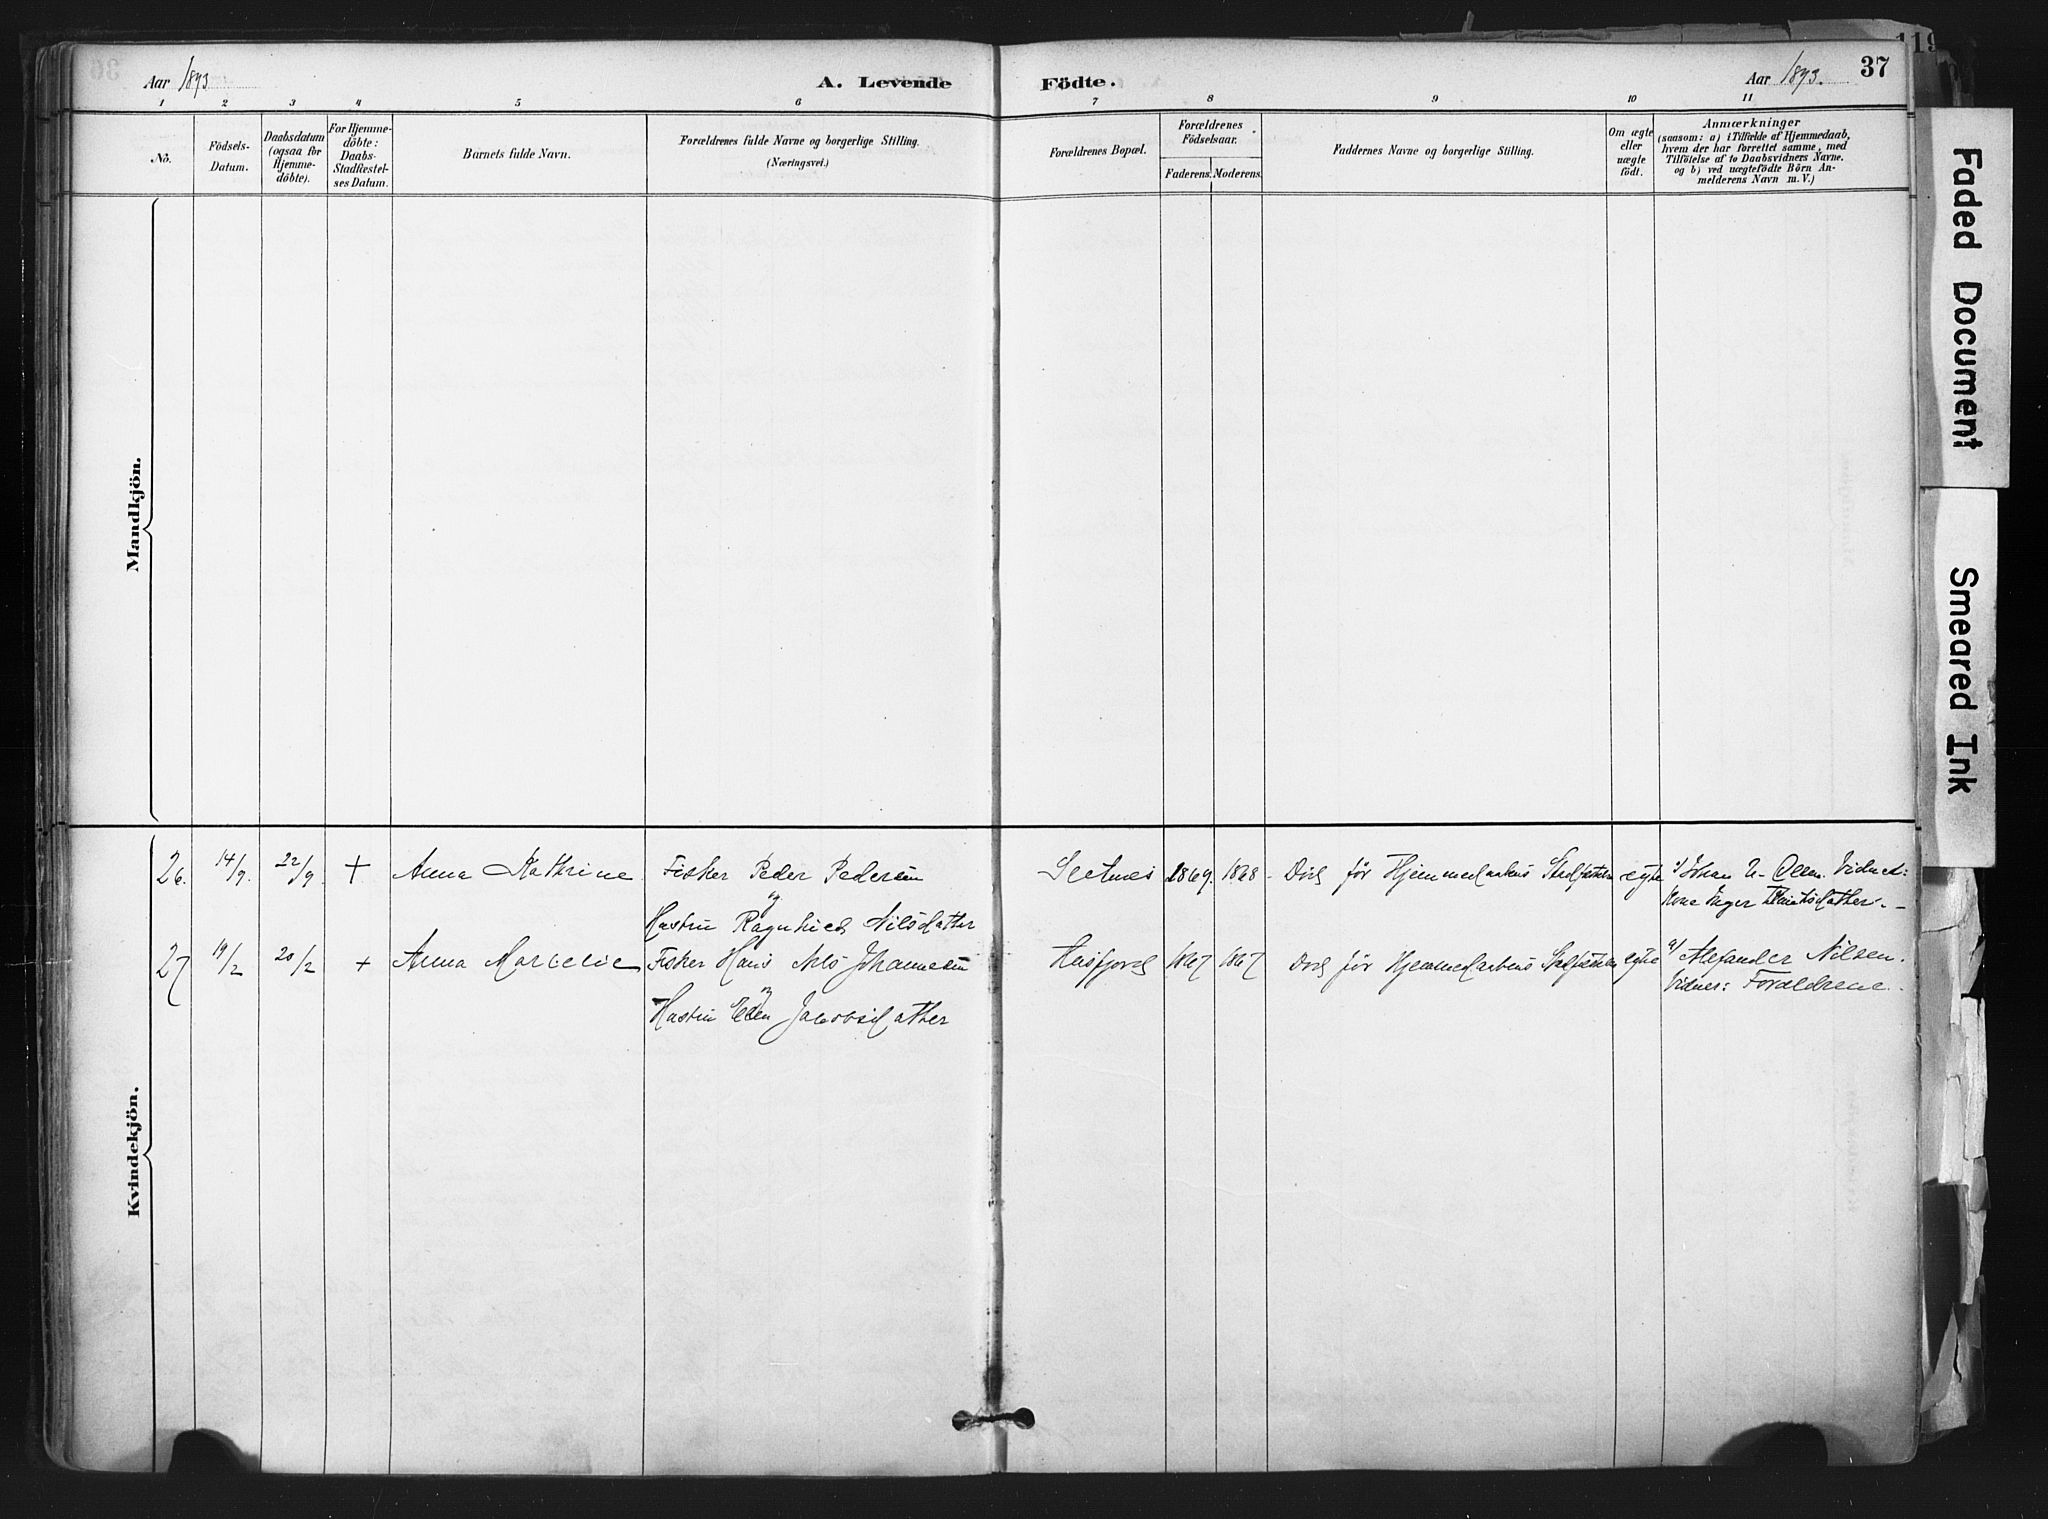 Aar 1893
A. Levende
Födte.
Aar 1893.
37
119
1 2 3 4 5 6 7 8 9 10 11
No.
Födsels-
Datum.
Daabsdatum
(ogsaa for
Hjemme-
döbte).
For Hjemme-
döbte:
Daabs-
Stadfæstel-
ses Datum.
Barnets fulde Navn.
Forældrenes fulde Navne og borgerlige Stilling.
(Næringsvei.)
Forældrenes Bopæl.
Forældrenes
Födselsaar.
Faderens. Moderens.
Faddernes Navne og borgerlige Stilling.
Om ægte
eller
uægte
födt.
Anmærkninger
(saasom: a) i Tilfælde af Hjemmedaab,
hvem der har forrettet samme, med
Tilföielse af to Daabsvidners Navne.
og b) ved uægtefödte Börn An-
melderens Navn m. V.)
Mandkjön.
Kvindekjön.
26. 14/9. 22/9. + Anna Kathrine Fisker Peder Pedersen 1869. 1868 Död før Hjemmedaabens Stadfæstelse egte a/ Johan Olsen. Vidner:
og
Kone Inger
Hustru Ragnhild Nilsdatter
27 19/2 20/2 + Anna Marcelie Fisker Hans Nils Johannesen Husfjord 1867 1867 Död før Hjemmedaabens Stadfæstelse egte a/ Alexander Nilsen.
og
Vidner: Forældrene.
Hustru Ellen Jakobsdatter
Faded Document
Smeared Ink